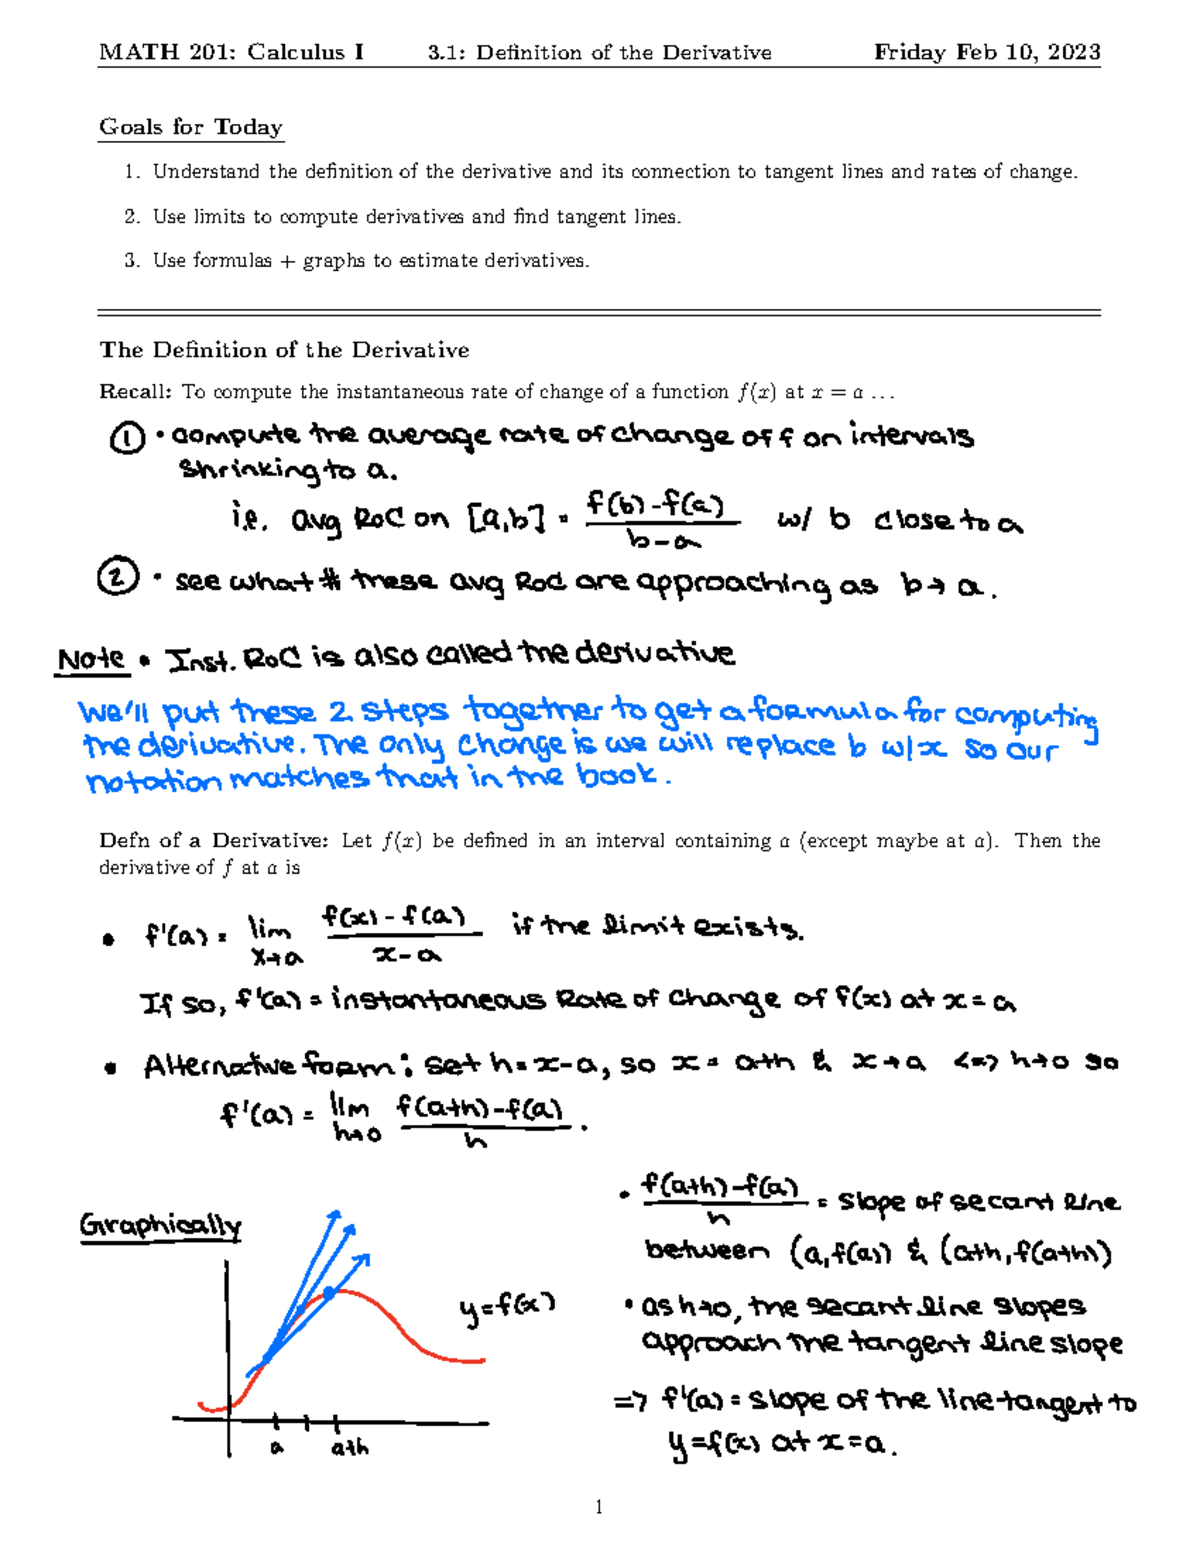 MATH 201: Calculus I 3.1: Definition of the Derivative Friday Feb 10, 2023
Goals for Today
1. Understand the definition of the derivative and its connection to tangent lines and rates of change.
2. Use limits to compute derivatives and find tangent lines.
3. Use formulas + graphs to estimate derivatives.
The Definition of the Derivative
Recall: To compute the instantaneous rate of change of a function f(x) at x = a ...
① • compute the average rate of change of f on intervals
shrinking to a.
i.e. avg RoC on [a,b] = (f(b)-f(a))/(b-a) w/ b close to a
② • see what # these avg Rod are approaching as b→a.
Note • Inst. RoC is also called the derivative
We'll put these 2 steps together to get a formula for computing
the derivative. The only change is we will replace b w/x so our
notation matches that in the book.
Defn of a Derivative: Let f(x) be defined in an interval containing a (except maybe at a). Then the
derivative of f at a is
• f'(a) = lim x→a (f(x)-f(a))/(x-a) if the limit exists.
If so, f'(a) = instantaneous Rate of Change of f(x) at x=a
• Alternative form: set h=x-a, so x = a+h & x→a <=> h→0 so
f'(a) = lim h→0 (f(a+h)-f(a))/h.
Graphically
y=f(x)
a a+h
• (f(a+h)-f(a))/h = slope of secant line
between (a,f(a)) & (a+h,f(a+h))
• as h→0, the secant line slopes
approach the tangent line slope
=> f'(a) = slope of the line tangent to
y=f(x) at x=a.
1